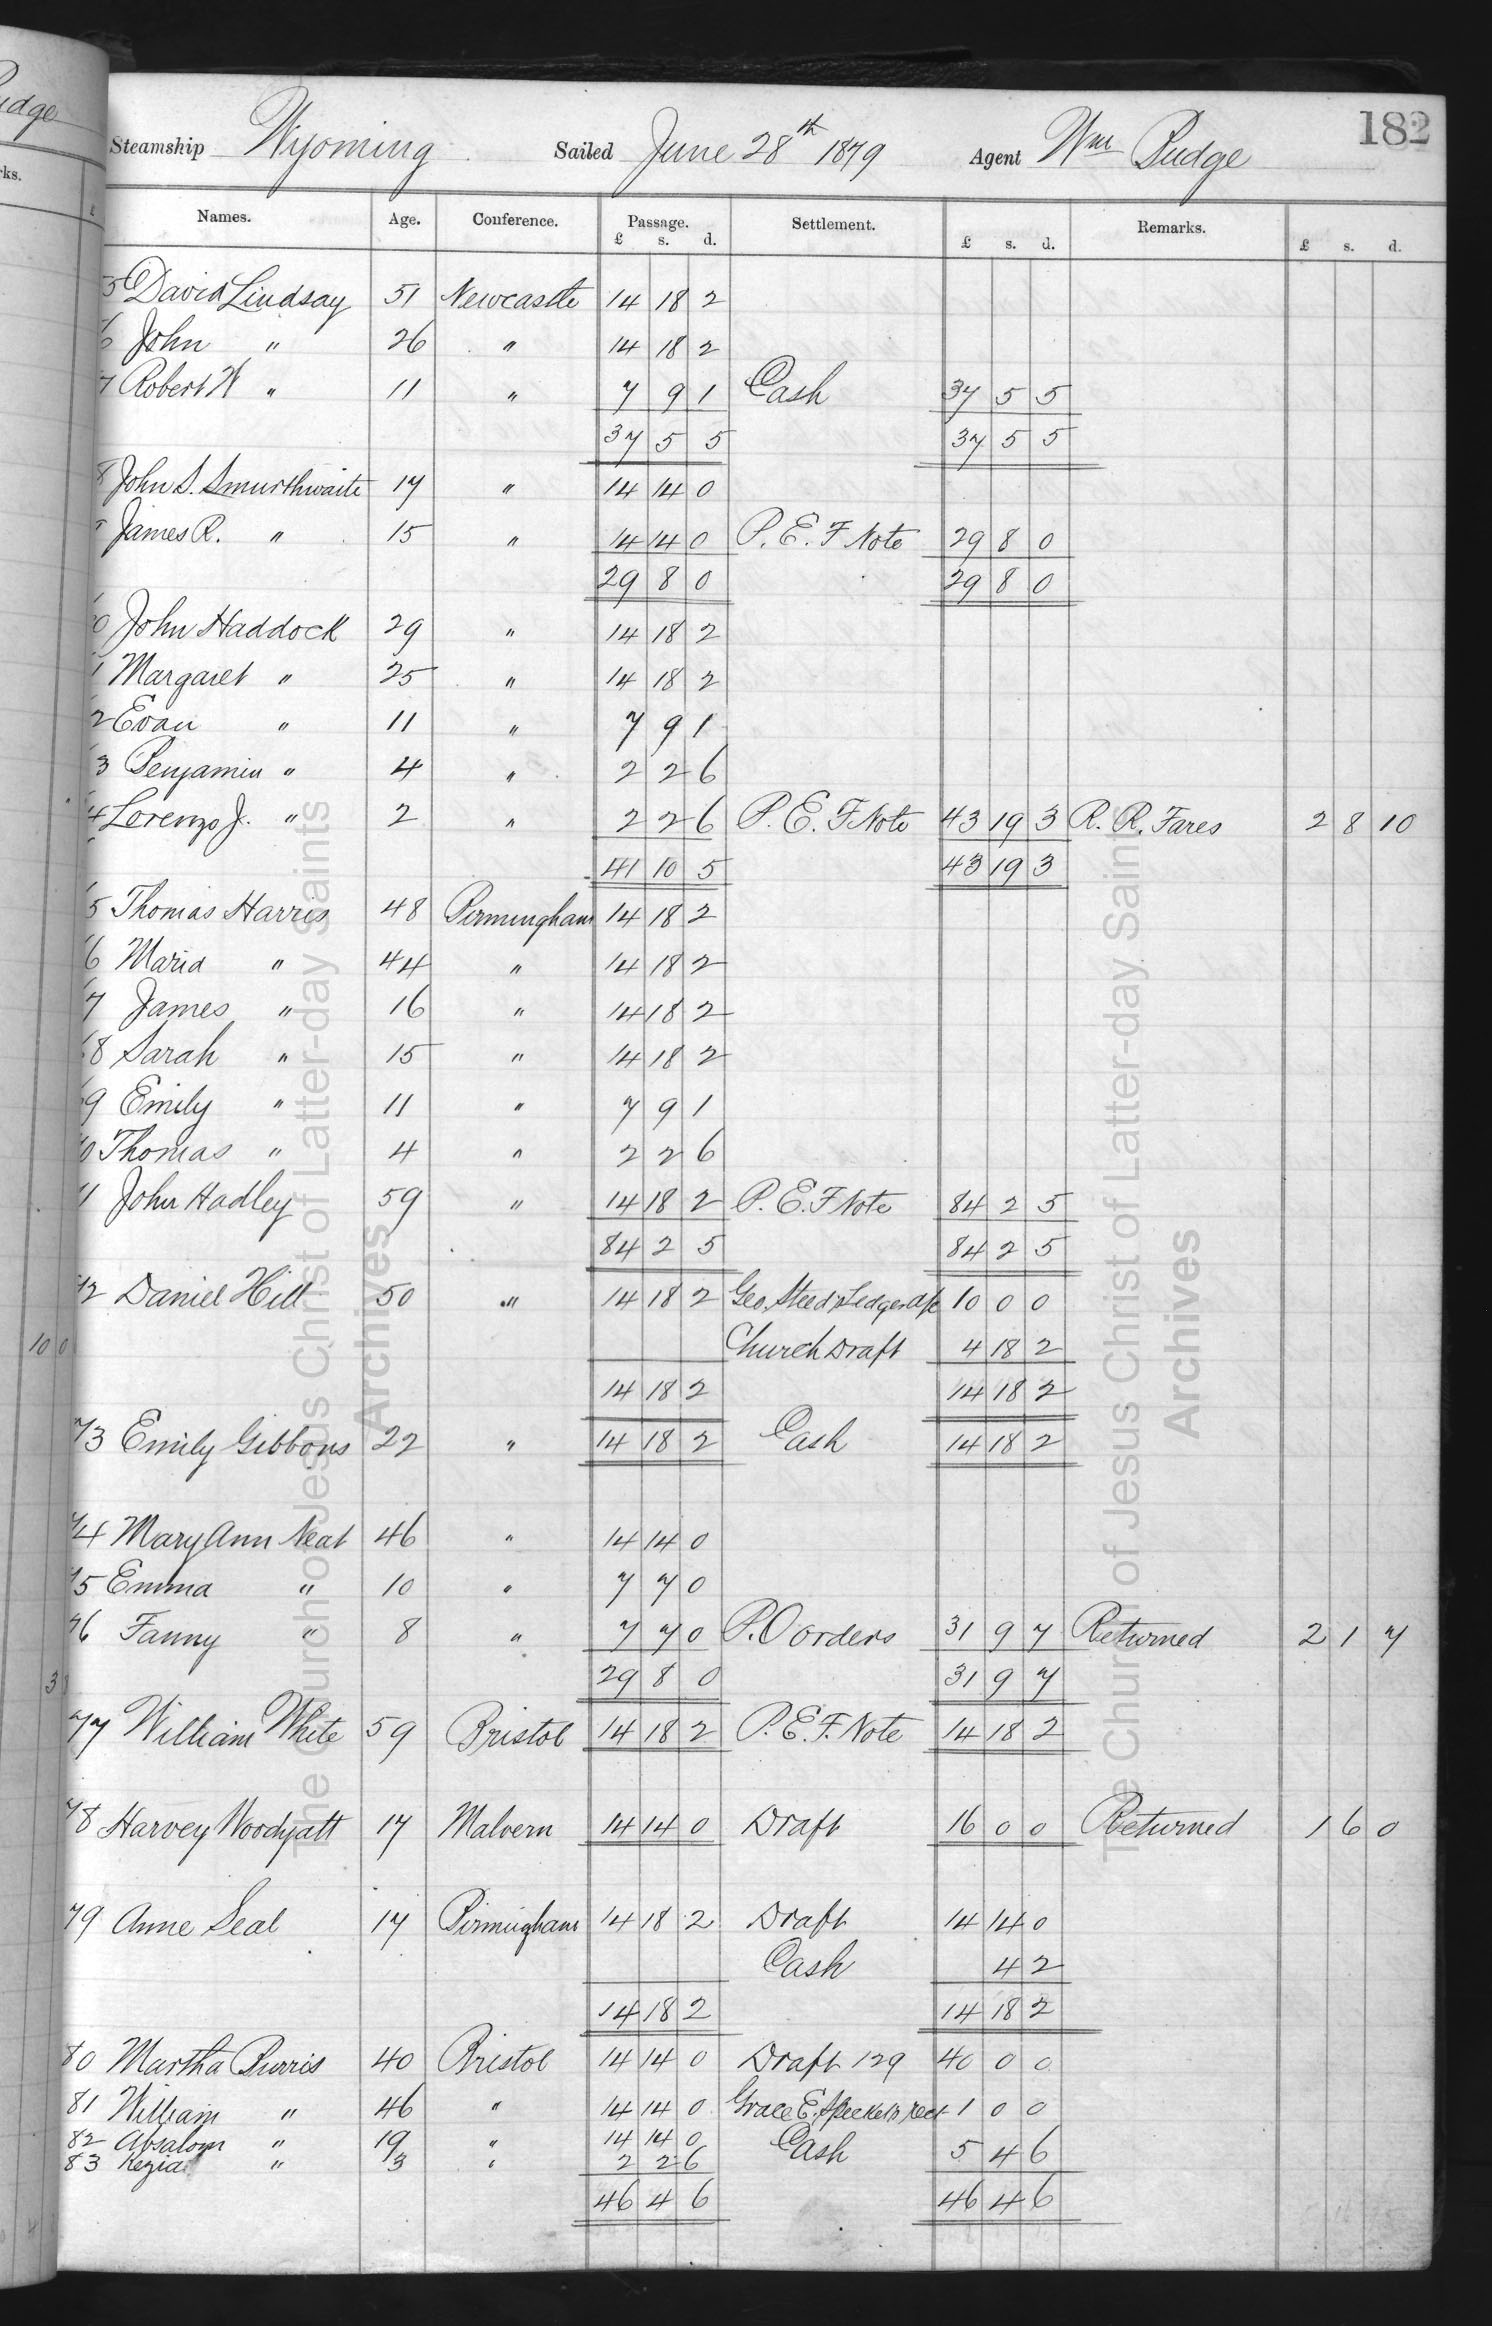 udge
ks.
182
Steamship Wyoming Sailed June 28th 1879 Agent Wm Budge
Names. Age. Conference. Passage. £ s. d. Settlement. £ s. d. Remarks. £ s. d.
5 David Lindsay 51 Newcastle 14 18 2
6 John " 26 " 14 18 2
7 Robert W " 11 " 7 9 1 Cash 37 5 5
37 5 5 37 5 5
8 John S. Smurthwaite 17 " 14 14 0
James R. " 15 " 14 14 0 P. E. F Note 29 8 0
29 8 0 29 8 0
0 John Haddock 29 " 14 18 2
1 Margaret " 25 " 14 18 2
2 Evan " 11 " 7 9 1
3 Benjamin " 4 " 2 2 6
4 Lorenzo J. " 2 " 2 2 6 P. E. F Note 43 19 3 R. R. Fares 2 8 10
41 10 5 43 19 3
5 Thomas Harris 48 Birmingham 14 18 2
6 Maria " 44 " 14 18 2
7 James " 16 " 14 18 2
68 Sarah " 15 " 14 18 2
69 Emily " 11 " 7 9 1
70 Thomas " 4 " 2 2 6
71 John Hadley 59 " 14 18 2 P. E. F Note 84 2 5
84 2 5 84 2 5
72 Daniel Hill 50 " 14 18 2 Geo. Steeds Ledger a/c 10 0 0
10 0
Church Draft 4 18 2
14 18 2 14 18 2
73 Emily Gibbons 22 " 14 18 2 Cash 14 18 2
74 Mary Ann Neat 46 " 14 14 0
75 Emma " 10 " 7 7 0
76 Fanny " 8 " 7 7 0 P. O orders 31 9 7 Returned 2 1 7
29 8 0 31 9 7
77 William White 59 Bristol 14 18 2 P. E. F. Note 14 18 2
78 Harvey Woodyatt 17 Malvern 14 14 0 Draft 16 0 0 Returned 1 6 0
79 Anne Seal 17 Birmingham 14 18 2 Draft 14 14 0
Cash 4 2
14 18 2 14 18 2
80 Martha Burris 40 Bristol 14 14 0 Draft 129 40 0 0
81 William " 46 " 14 14 0 Grace E. 1 0 0
82 Absalom " 19 " 14 14 0 Cash 5 4 6
83 Kezia " 3 " 2 2 6
46 4 6 46 4 6
The Church of Jesus Christ of Latter-day Saints
Archives
The Church of Jesus Christ of Latter-day Saints
Archives